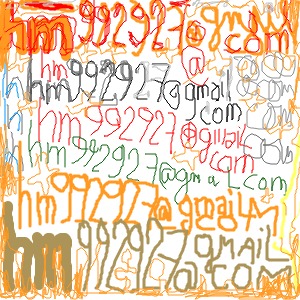 hm992927@gmail
com
hm992927@gmail
com
hm992927@gmail
com
hm992927@gmaLcom
hm992927@gmail
hm992927@GMAIL
COM